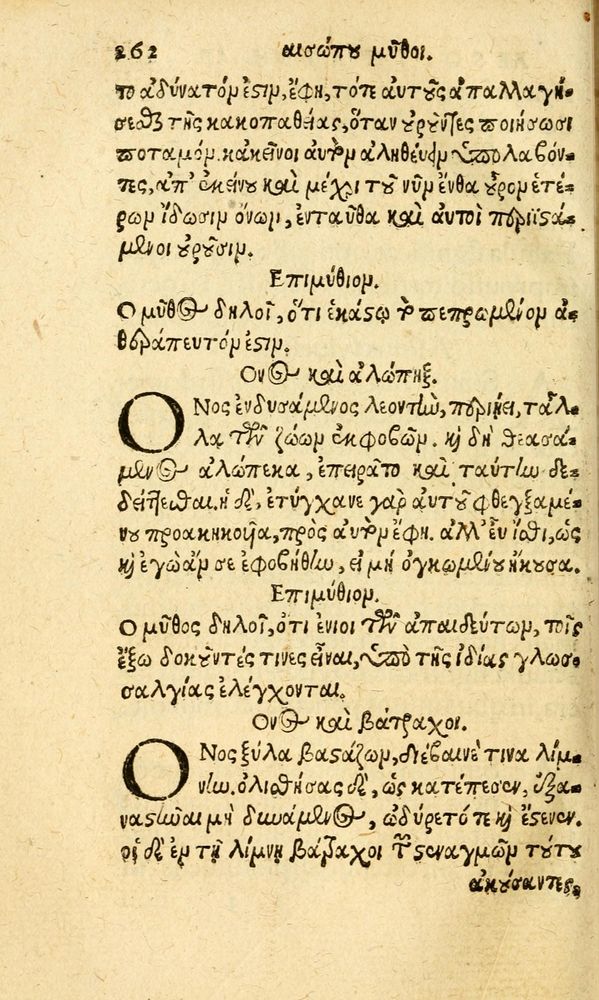 262 αισώπου μῦθοι.
το ἀδύνατόν ἐστιν, ἔφη, τότε αὐτοὺς ἀπαλλαγή-
σεσθαι τῆς κακοπαθείας, ὅταν οὐροῦντες ποιήσωσι
ποταμόν. κἀκεῖνοι αὐτὸν ἀληθεύειν ὑπολαβόν-
τες, ἀπ' ἐκείνου καὶ μέχρι τοῦ νῦν ἔνθα οὖρον ἑτέ-
ρων ἴδωσιν ὄνων, ἐνταῦθα καὶ αὐτοὶ περιϊστά-
μενοι οὐροῦσιν.
Επιμύθιον.
Ο μῦθος δηλοῖ, ὅτι ἑκάστῳ τὸ πεπρωμένον ἀ-
θεράπευτόν ἐστιν.
Ονος καὶ ἀλώπηξ.
ΟΝος ἐνδυσάμενος λεοντὴν, περιῄει, τἆλ-
λα τῶν ζώων ἐκφοβῶν. καὶ δὴ θεασά-
μενος ἀλώπεκα, ἐπειρᾶτο καὶ ταύτην δε-
δίττεσθαι. ἡ δὲ, ἐτύγχανε γὰρ αὐτοῦ φθεγξαμέ-
νου προακηκουῖα, πρὸς αὐτὸν ἔφη. ἀλλ' εὖ ἴσθι, ὡς
καὶ ἐγὼ ἄν σε ἐφοβήθην, εἰ μὴ ὀγκωμένου ἤκουσα.
Επιμύθιον.
Ο μῦθος δηλοῖ, ὅτι ἔνιοι τῶν ἀπαιδεύτων, τοῖς
ἔξω δοκοῦντές τινες εἶναι, ὑπὸ τῆς ἰδίας γλωσ-
σαλγίας ἐλέγχονται.
Ονος καὶ βάτραχοι.
ΟΝος ξύλα βαστάζων, διέβαινέ τινα λίμ-
νην. ὀλισθήσας δὲ, ὡς κατέπεσεν, ἐξα-
ναστῆναι μὴ δυνάμενος, ὠδύρετό τε καὶ ἔστενεν.
οἱ δὲ ἐν τῇ λίμνῃ βάτραχοι τῶν στεναγμῶν τούτου
ἀκούσαντες,